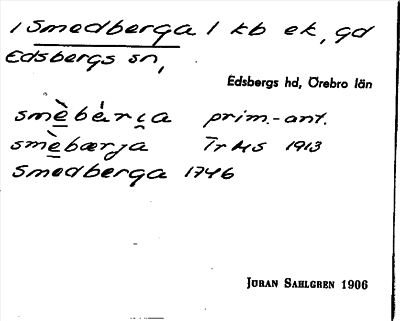 1 Smedberga 1 kb ek, gd
Edsbergs sn,
Edsbergs hd, Örebro län
smèbárja prim.-ant.
smèbærja TrMs 1913
Smedberga 1746
Jöran Sahlgren 1906